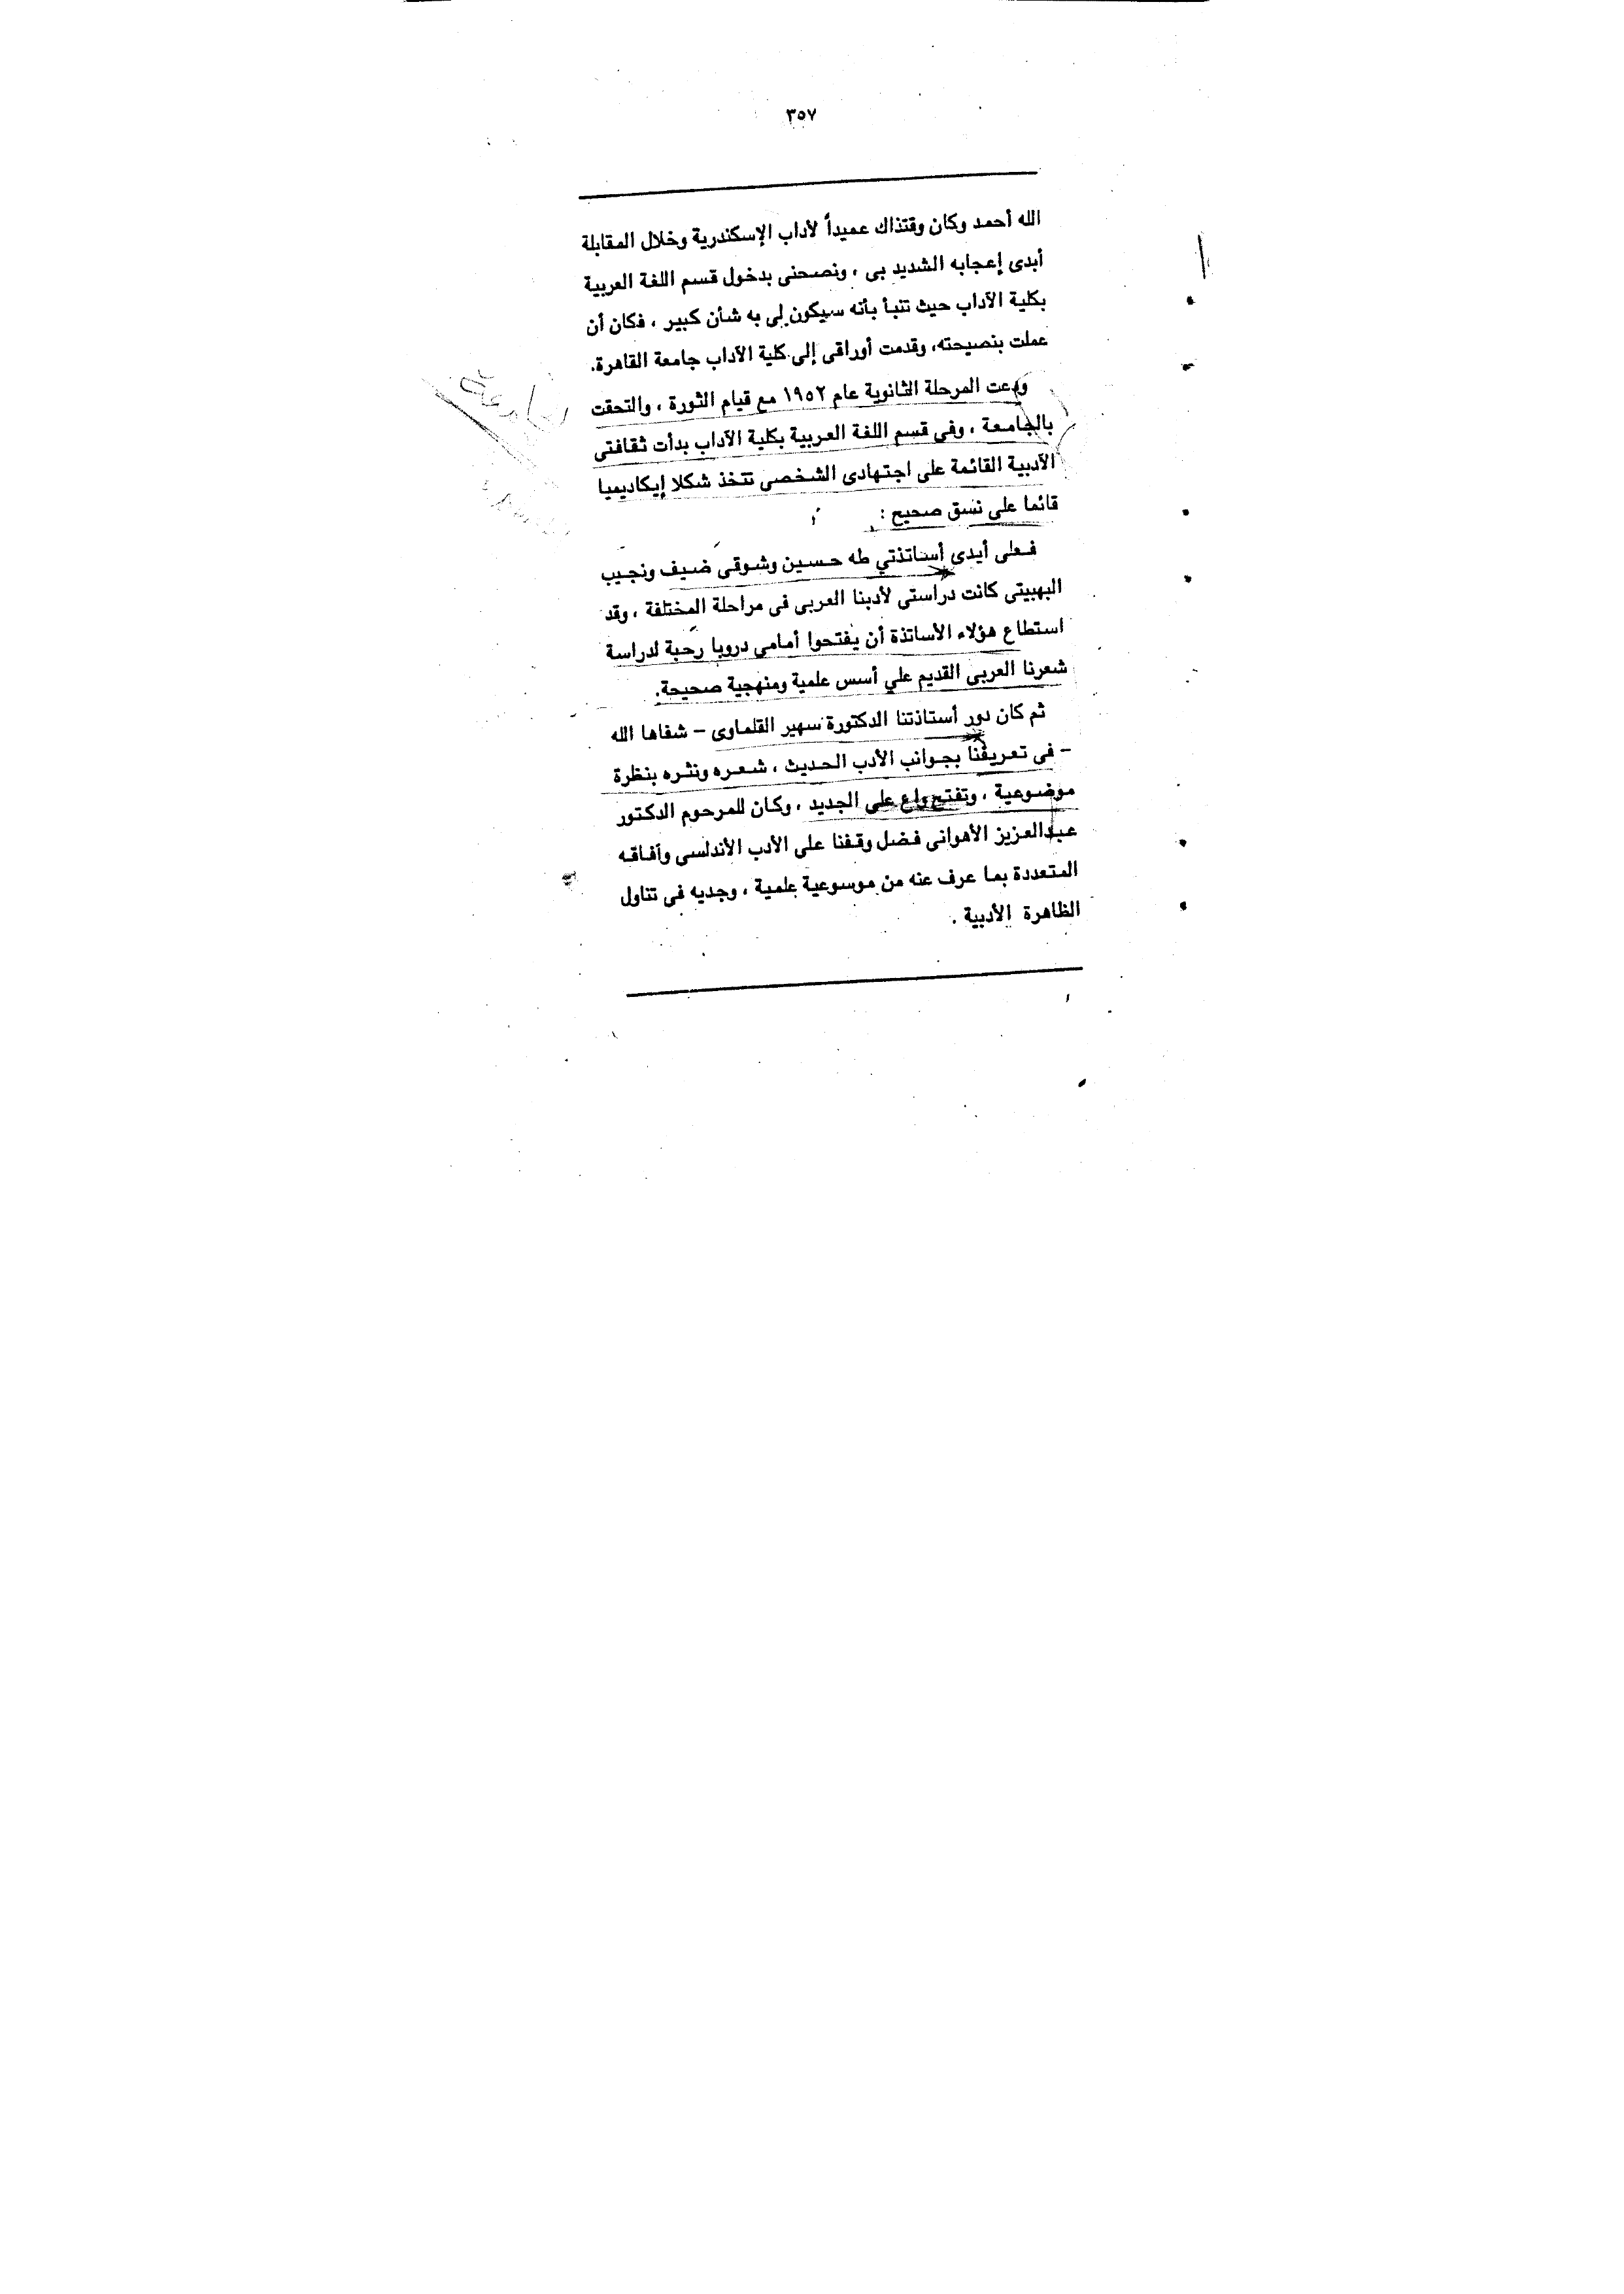 ٣٥٧
الله أحمد وكان وقتذاك عميداً لآداب الإسكندرية وخلال المقابلة
أبدى إعجابه الشديد بى ، ونصحنى بدخول قسم اللغة العربية
بكلية الآداب حيث تنبأ بأنه سيكون لى به شأن كبير ، فكان أن
عملت بنصيحته، وقدمت أوراقى إلى كلية الآداب جامعة القاهرة.
ودعت المرحلة الثانوية عام ١٩٥٢ مع قيام الثورة ، والتحقت
بالجامعة ، وفى قسم اللغة العربية بكلية الآداب بدأت ثقافتى
الأدبية القائمة على اجتهادى الشخصى تتخذ شكلا إيكاديميا
قائما على نسق صحيح :
فعلى أيدى أساتذتي طه حسين وشوقى ضيف ونجيب
البهبيتى كانت دراستى لأدبنا العربى فى مراحلة المختلفة ، وقد
استطاع هؤلاء الأساتذة أن يفتحوا أمامى دروبا رحبة لدراسة
شعرنا العربى القديم علي أسس علمية ومنهجية صحيحة.
ثم كان دور أستاذتنا الدكتورة سهير القلماوى – شفاها الله
– فى تعريفنا بجوانب الأدب الحديث ، شعره ونثره بنظرة
موضوعية ، وتفتح واع على الجديد ، وكان للمرحوم الدكتور
عبدالعزيز الأهوانى فضل وقفنا على الأدب الأندلسى وآفاقه
المتعددة بما عرف عنه من موسوعية علمية ، وجديه فى تناول
الظاهرة الأدبية .